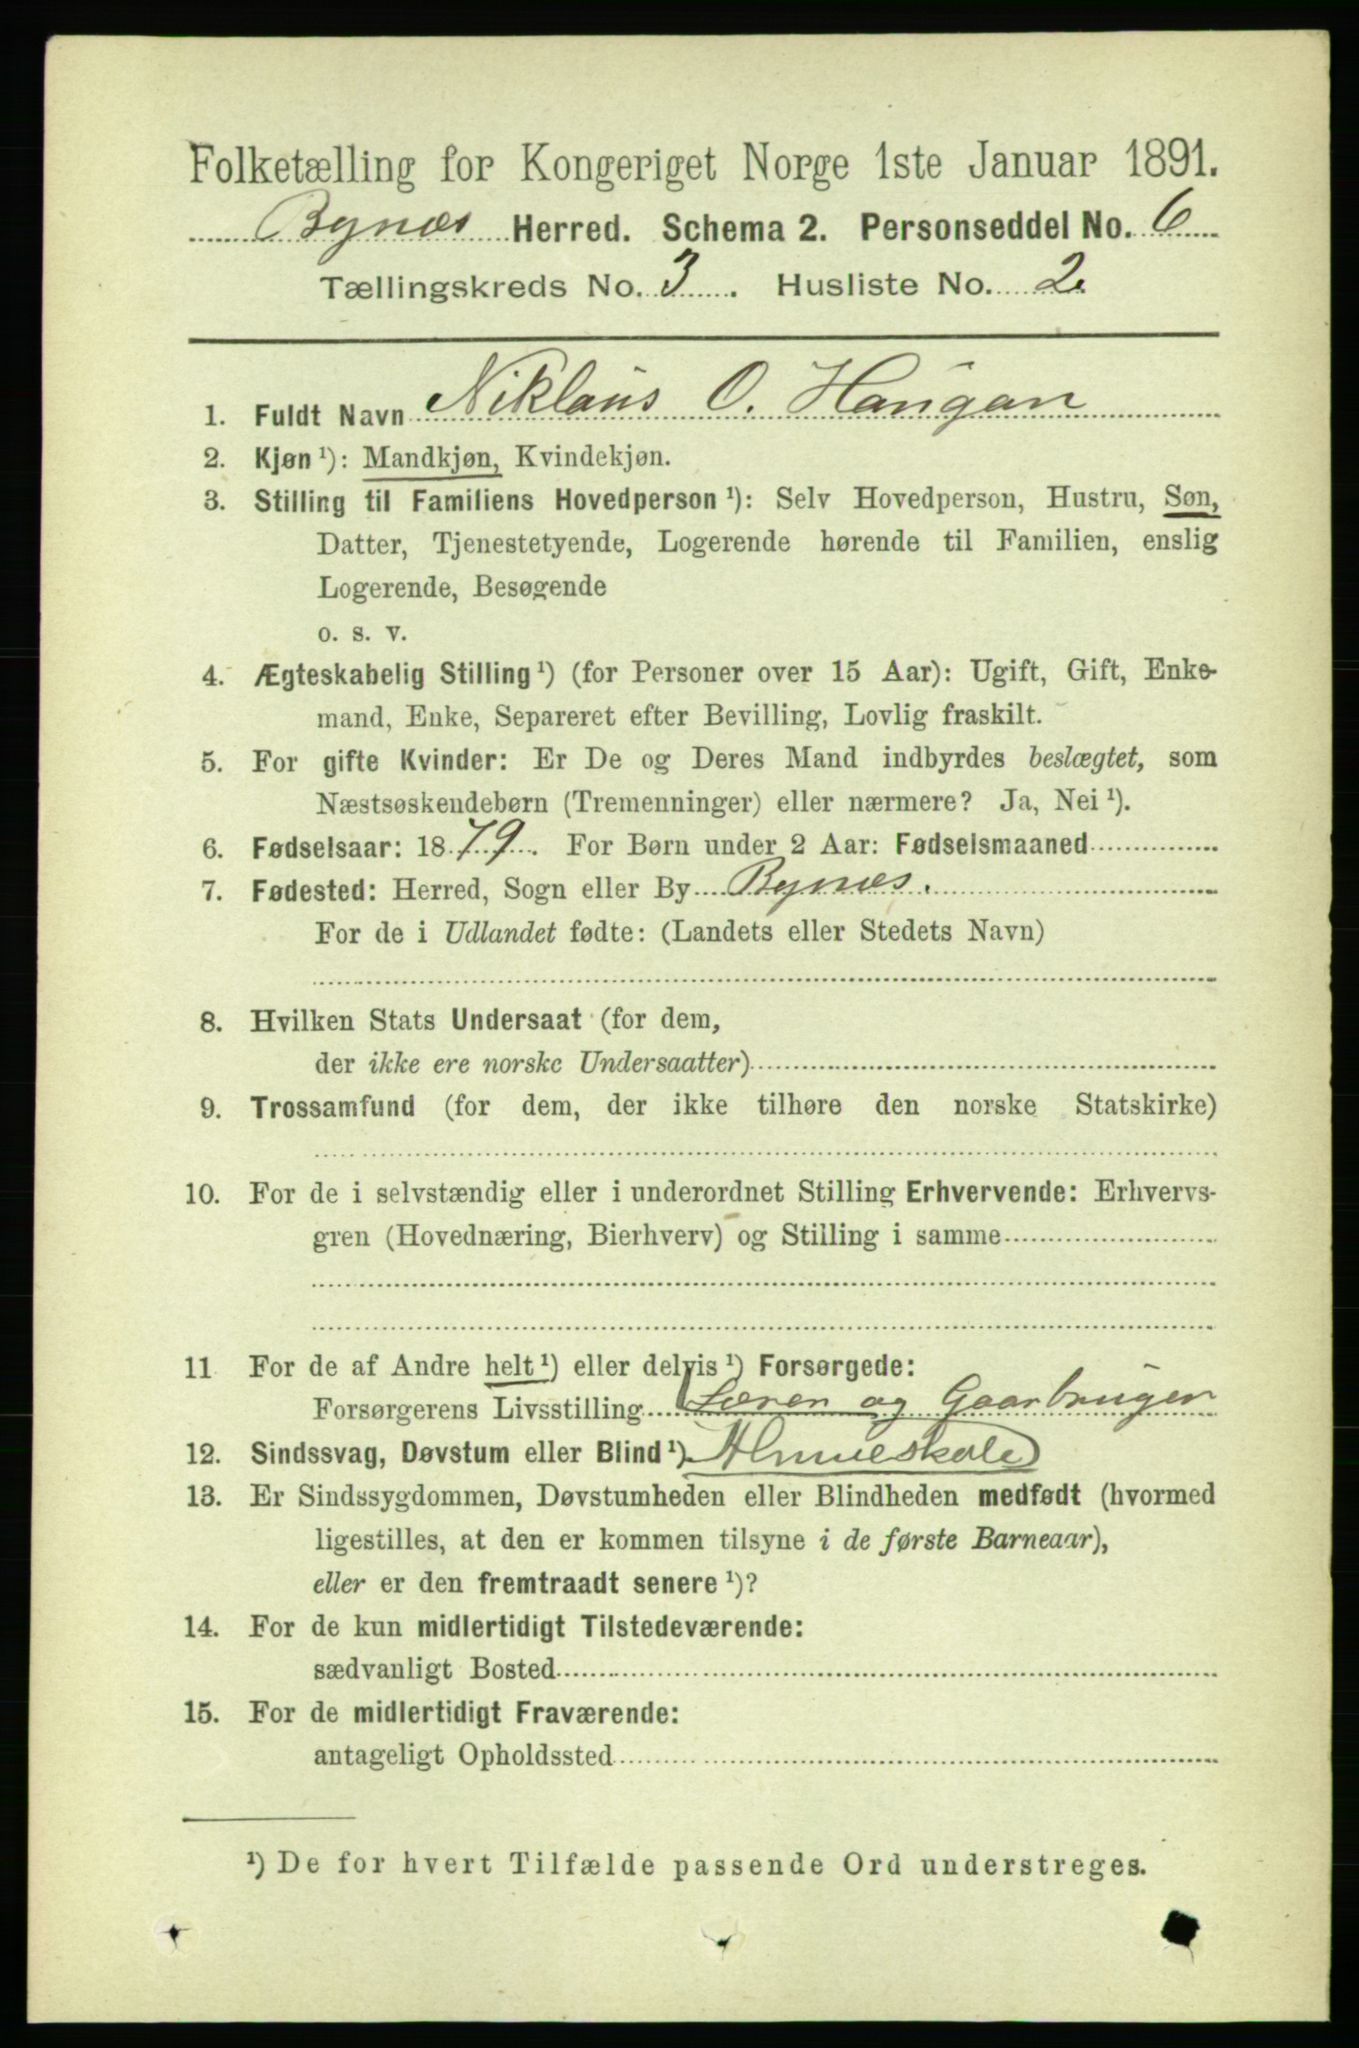 Folketælling for Kongeriget Norge 1ste Januar 1891.
Bynæs Herred. Schema 2. Personseddel No. 6
Tællingskreds No. 3. Husliste No. 2.
1. Fuldt Navn Niklaus O. Haugan
2. Kjøn ¹): Mandkjøn, Kvindekjøn.
3. Stilling til Familiens Hovedperson ¹): Selv Hovedperson, Hustru, Søn,
Datter, Tjenestetyende, Logerende hørende til Familien, enslig
Logerende, Besøgende
o. s. v.
4. Ægteskabelig Stilling ¹) (for Personer over 15 Aar): Ugift, Gift, Enke-
mand, Enke, Separeret efter Bevilling, Lovlig fraskilt.
5. For gifte Kvinder: Er De og Deres Mand indbyrdes beslægtet, som
Næstsøskendebørn (Tremenninger) eller nærmere? Ja, Nei ¹).
6. Fødselsaar: 1879. For Børn under 2 Aar: Fødselsmaaned
7. Fødested: Herred, Sogn eller By Bynæs.
For de i Udlandet fødte: (Landets eller Stedets Navn)
8. Hvilken Stats Undersaat (for dem,
der ikke ere norske Undersaatter)
9. Trossamfund (for dem, der ikke tilhøre den norske Statskirke)
10. For de i selvstændig eller i underordnet Stilling Erhvervende: Erhvervs-
gren (Hovednæring, Bierhverv) og Stilling i samme
11 For de af Andre helt ¹) eller delvis ¹) Forsørgede:
Forsørgerens Livsstilling Lærer og Gaarbruger
12. Sindssvag, Døvstum eller Blind ¹). Almueskole
13. Er Sindssygdommen, Døvstumheden eller Blindheden medfødt (hvormed
ligestilles, at den er kommen tilsyne i de første Barneaar),
eller er den fremtraadt senere ¹)?
14. For de kun midlertidigt Tilstedeværende:
sædvanligt Bosted
15. For de midlertidigt Fraværende:
antageligt Opholdssted
¹) De for hvert Tilfælde passende Ord understreges.